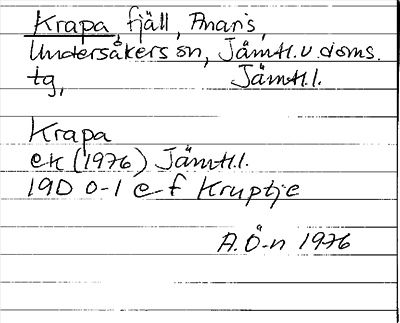 Krapa, fjäll, Anaris,
Undersåkers sn, Jämtl. v. doms.
tg, Jämtl.l.
Krapa
ek (1976) Jämtl.l.
19D 0-1 e-f Kruptje
A.Ö-n 1976